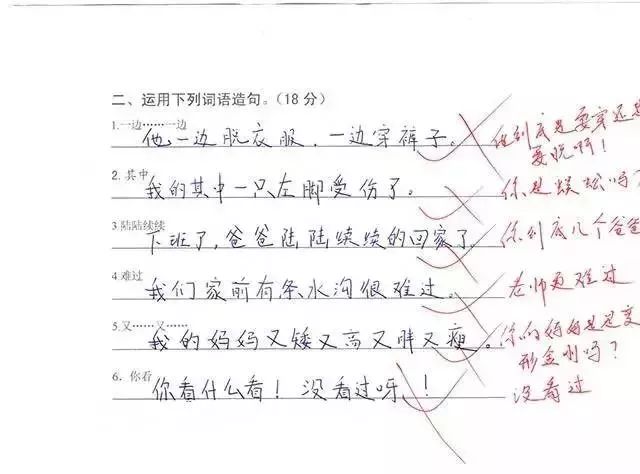 二、运用下列词语造句。(18分)
1.一边……一边
他一边脱衣服，一边穿裤子。
他到底是要穿还是
要脱啊！
2.其中
我的其中一只左脚受伤了。
你是蜈蚣吗？
3.陆陆续续
下班了，爸爸陆陆续续的回家了。
你到底几个爸爸
4.难过
我们家前有条水沟很难过。
老师更难过
5.又……又……
我的妈妈又矮又高又胖又瘦。
你的妈妈是是变
形金刚吗？
6.你看
你看什么看！没看过呀！
没看过